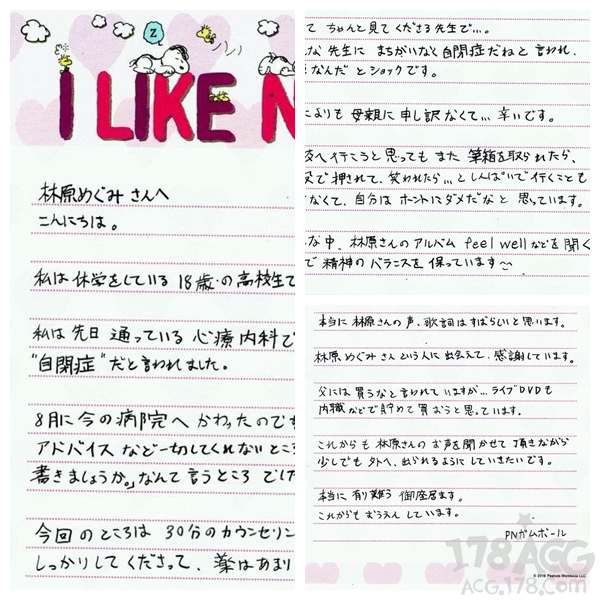 Z
I LIKE
林原めぐみさんへ
こんにちは。
私は休学をしている18歳の高校生で
私は先日通っている心療内科で
"自閉症"だと言われました。
8月に今の病院へかわったのです
アドバイスなど一切してくれないところ
書きましょうか。」なんて言うところでした
今回のところは30分のカウンセリン
しっかりしてくださって、薬はあまり
て ちゃんと見てくださる先生で…。
な先生にまちがいなく自閉症だねと言われ、
なんだとショックです。
よりも母親に申し訳なくて…辛いです。
へ行こうと思ってもまた筆箱を取られたら、
で押されて、笑われたら…としんぱいで行くことも
なくて、自分はホントにダメだなと思っています。
な中、林原さんのアルバムfeel wellなどを聞く
で精神のバランスを保っています〜
本当に林原さんの声、歌詞はすばらしいと思います。
林原めぐみさんという人に出会えて、感謝しています。
父には買うなと言われていますが…ライブDVDも
内職などで貯めて買おうと思っています。
これからも林原さんのお声を聞かせて頂きながら
少しでも外へ、出られるようにしていきたいです。
本当に有り難う御座居ます。
これからもおうえんしています。
PNガムボール
© 2016 Peanuts Worldwide LLC
178ACG
ACG.178.com